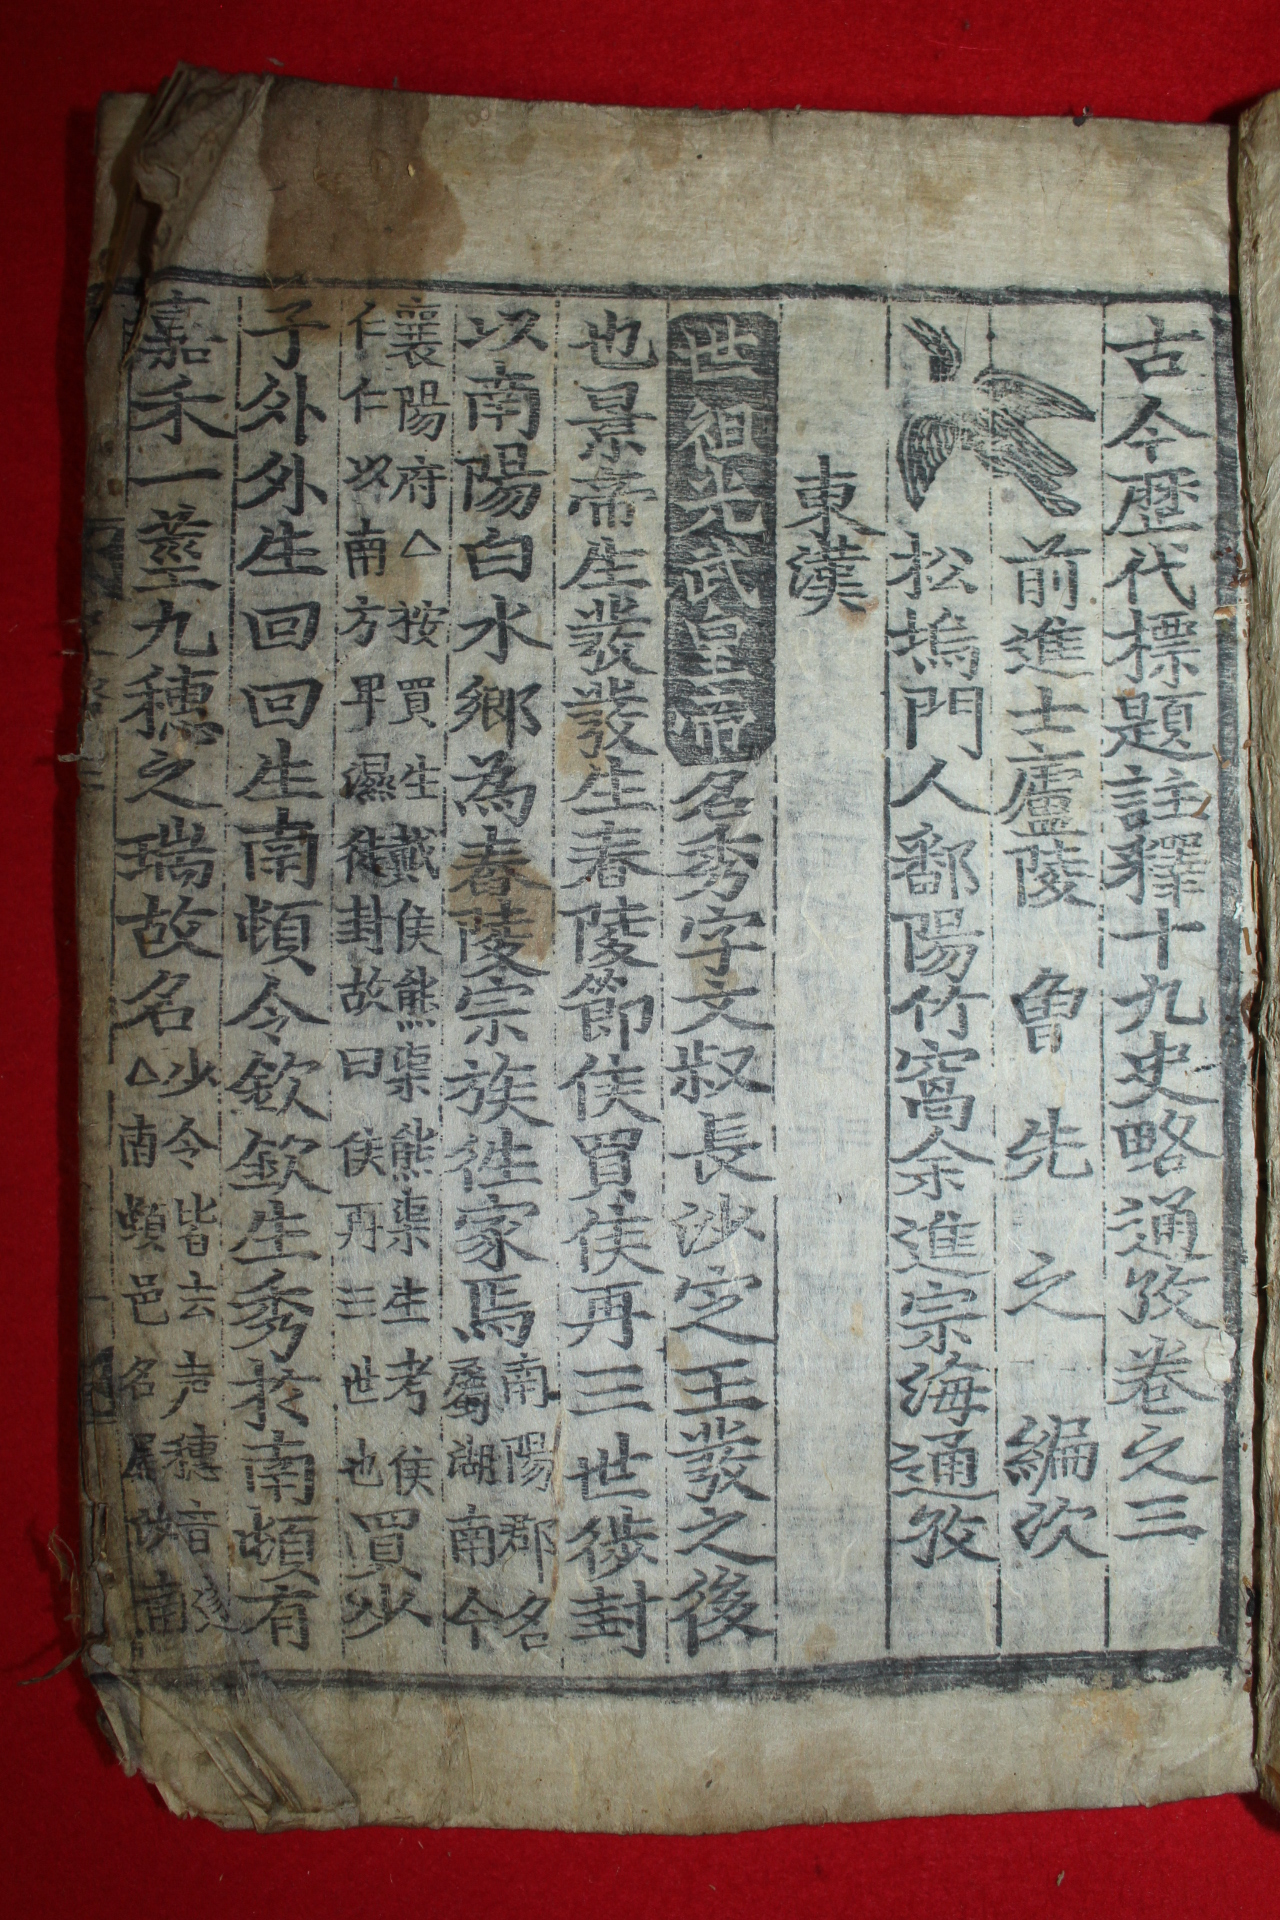 古今歷代標題註釋十九史略通攷卷之三
前進士廬陵 曾先之 編次
松塢門人鄱陽竹窩余進宗海通攷
東漢
世祖光武皇帝名秀字文叔長沙定王發之後
也景帝生發發生舂陵節侯買侯再三世徙封
以南陽白水鄕為舂陵宗族徃家焉南陽郡名屬湖南今
襄陽府△按買生戴侯熊渠熊渠生考侯仁仁以南方卑濕徙封故曰侯再三世也買少
子外外生回回生南頓令欽欽生秀於南頓有
嘉禾一莖九穗之瑞故名少令皆去声穗音遂△南頓邑名屬汝南